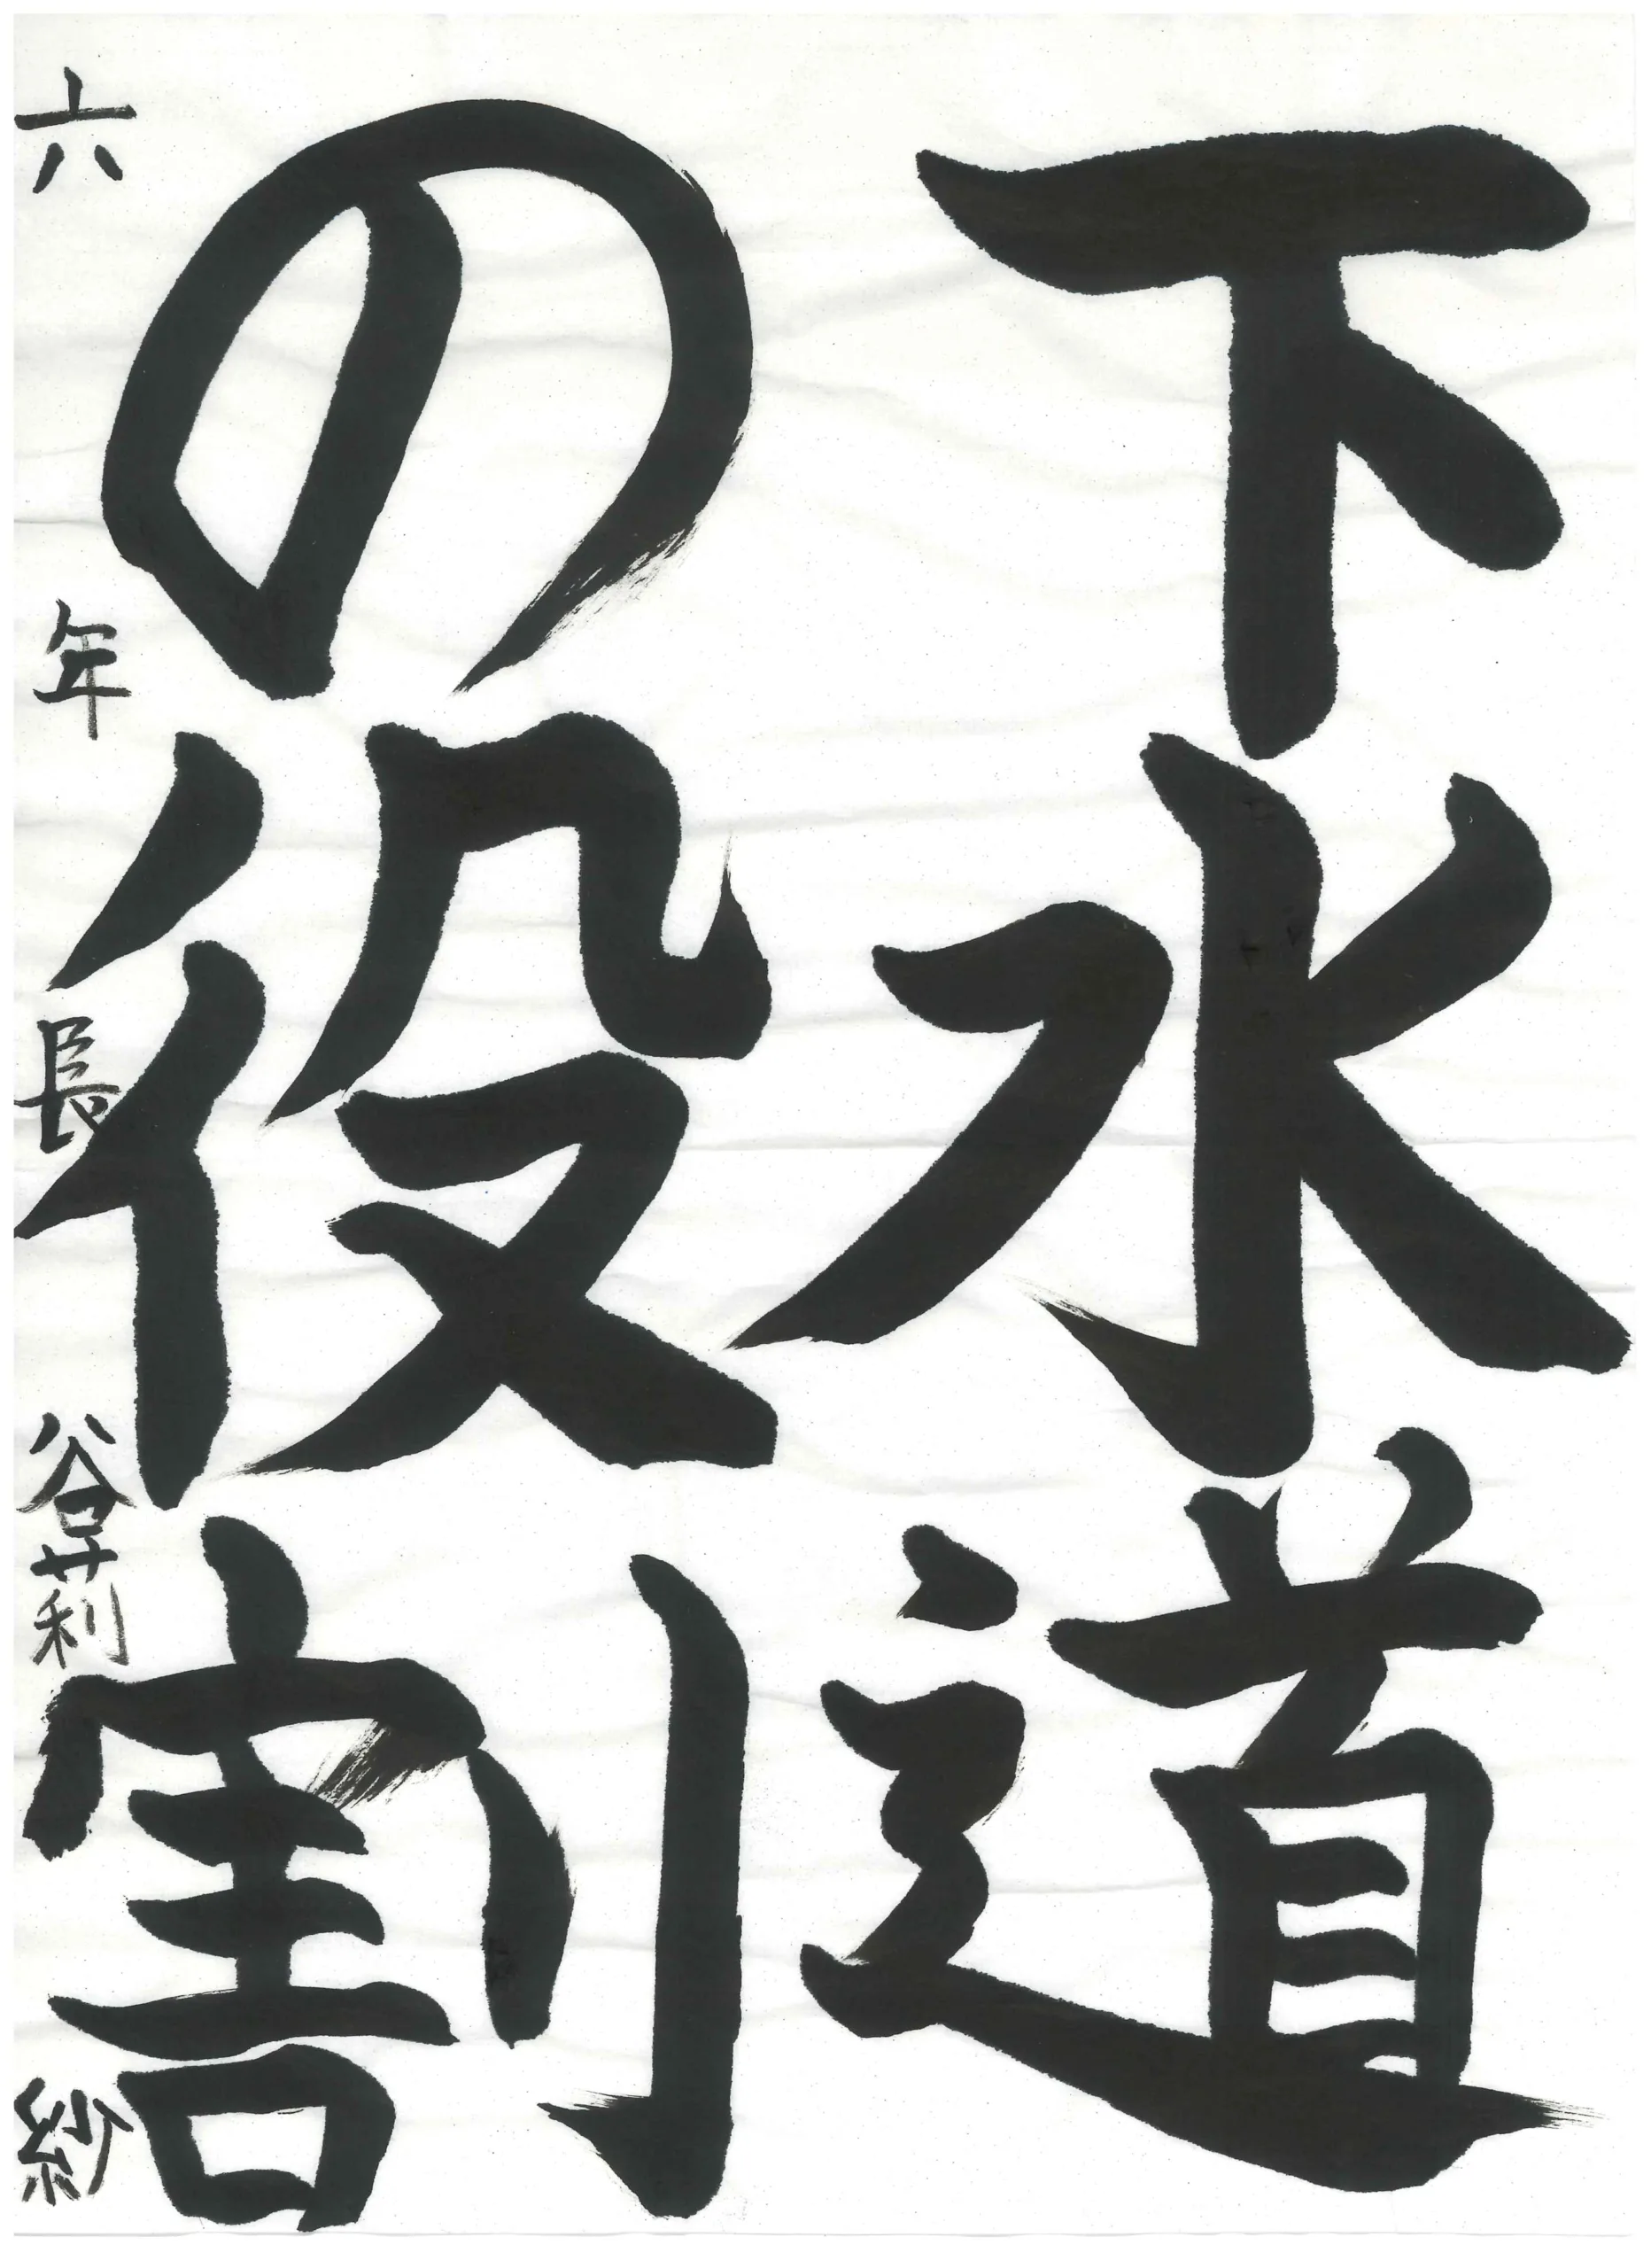 下水道
の役割
六年 長谷莉紗